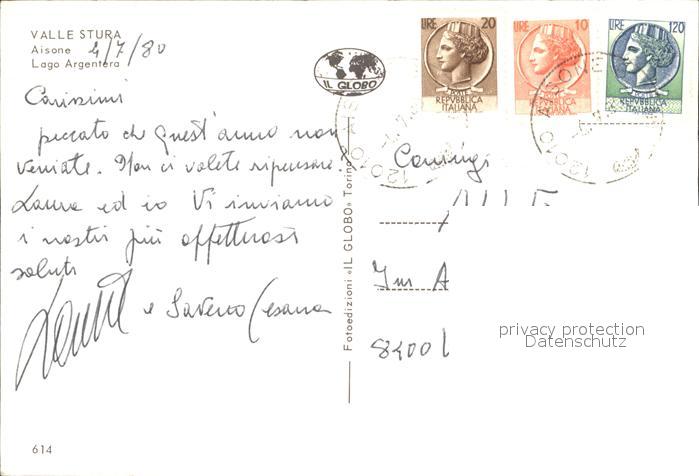 VALLE STURA
Aisone 4/7/80
Lago Argentera
Carissimi
peccato che quest'anno non
veniate. Non ci volete ripensare.
Laura ed io Vi inviamo
i nostri più affettuosi
saluti
e Saverio Cesana
614
IL GLOBO
Fotoedizioni «IL GLOBO» Torino
LIRE 20
POSTE
REPVBBLICA
ITALIANA
LIRE 10
POSTE
REPVBBLICA
ITALIANA
LIRE 120
POSTE
REPVBBLICA
ITALIANA
12010 AISONE
Coniugi
8400
privacy protection
Datenschutz